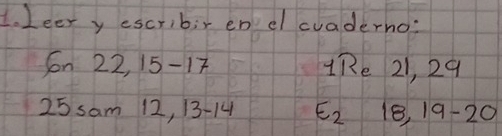 1. Leer y escribir en el cuaderno:
Gn 22, 15-17 1Re 21, 29
2Ssam 12, 13-14 Ez 18, 19-20